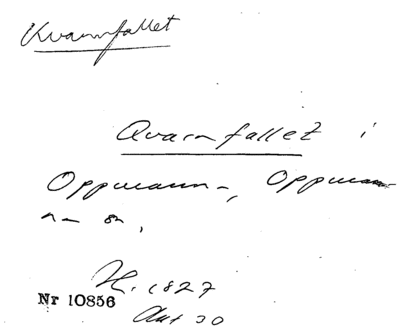 Kvarnfallet
Qvarnfallet i
Oppmanna-, Oppman-
na sn,
H. 1827
Nr 10856
Akt 20